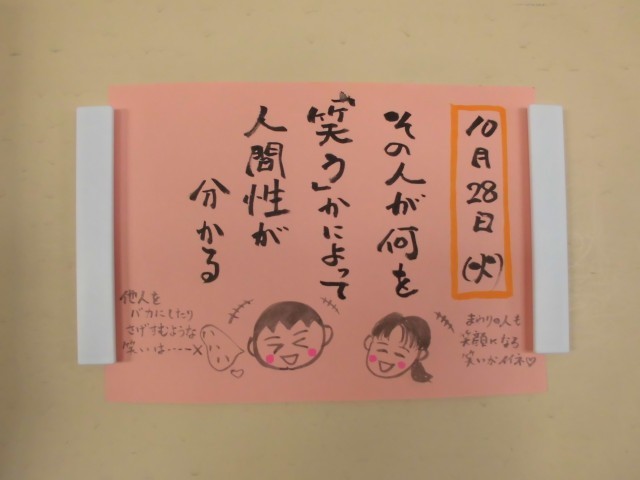 10月28日(火)
その人が何を
「笑う」かによって
人間性が
分かる
まわりの人も
笑顔になる
笑いがイイネ♡
他人を
バカにしたり
さげすむような
笑いは・・・×